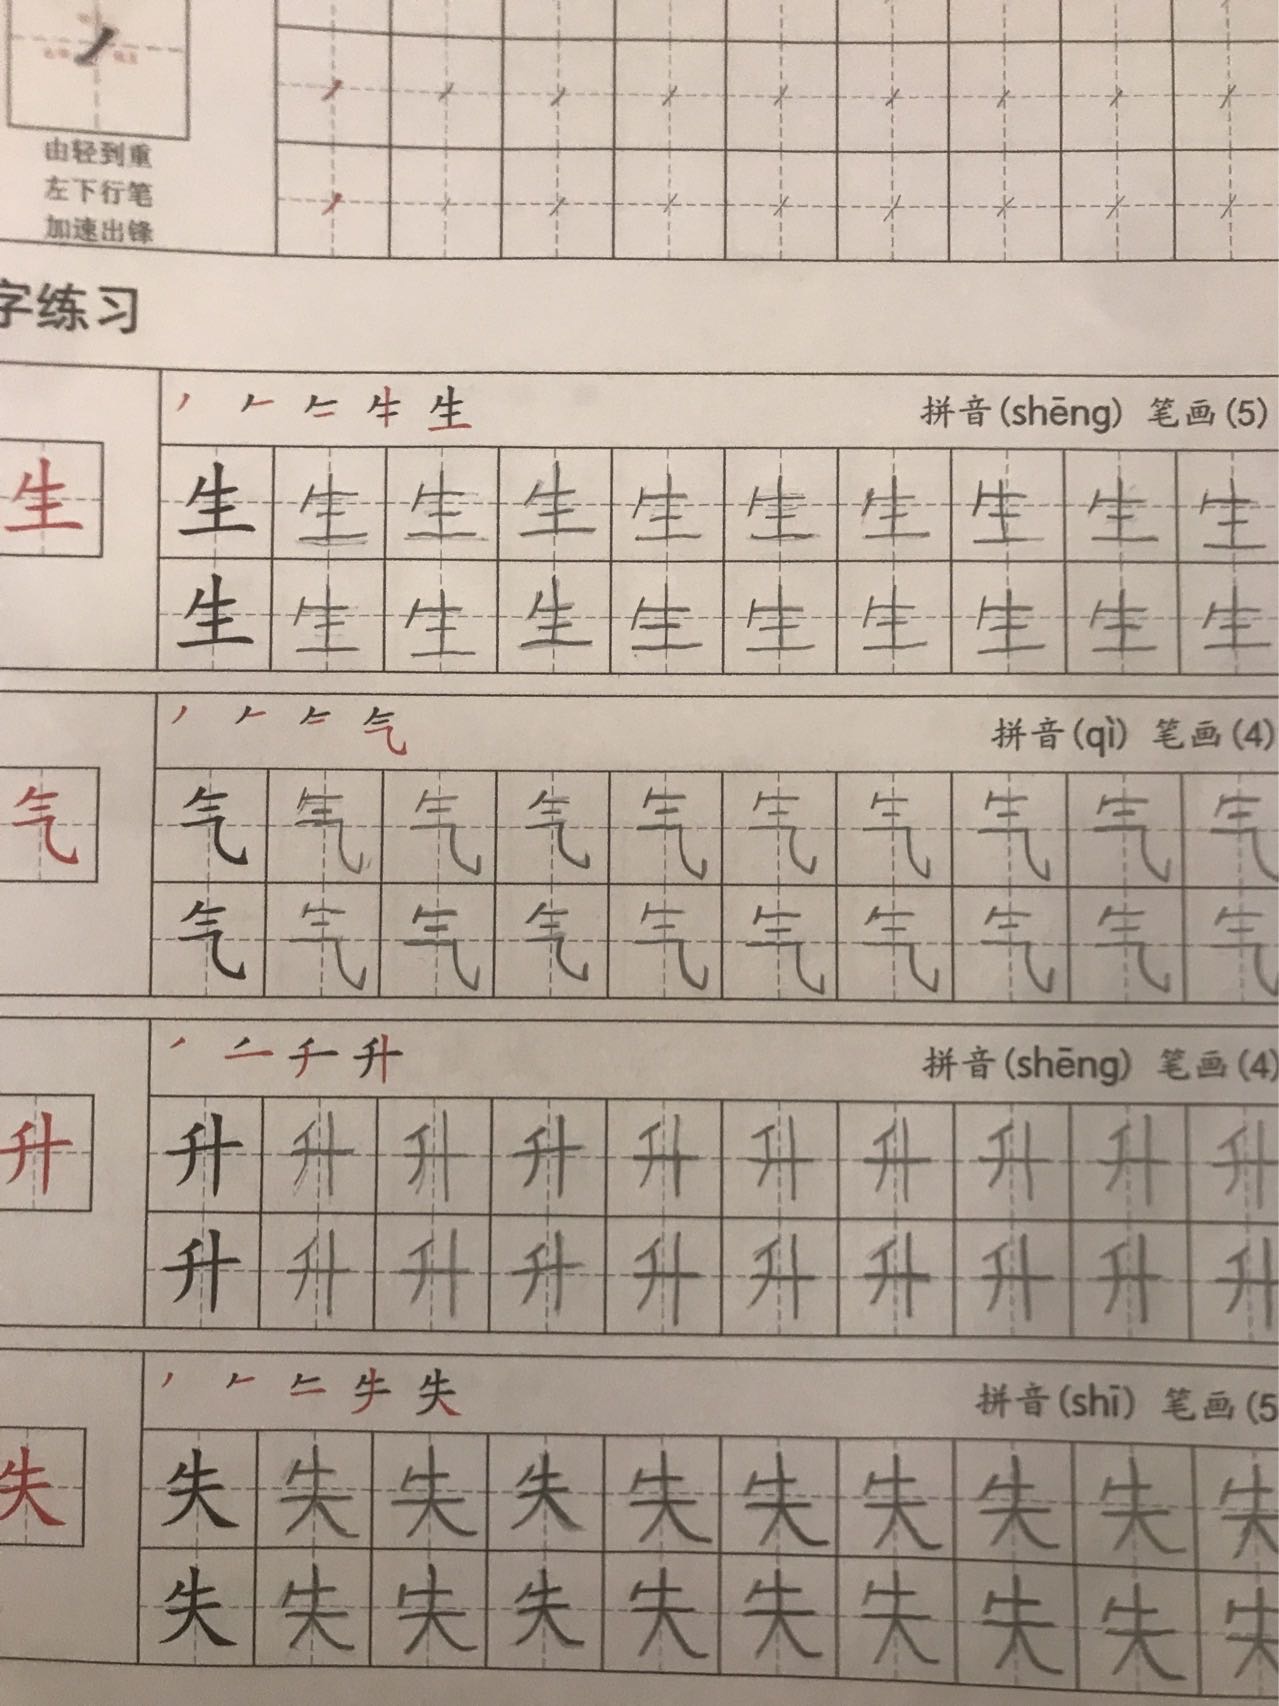 由轻到重
左下行笔
加速出锋
字练习
拼音(shēng) 笔画(5)
生 生 生 生 生 生 生 生 生 生 生
生 生 生 生 生 生 生 生 生 生
拼音(qì) 笔画(4)
气 气 气 气 气 气 气 气 气 气 气
气 气 气 气 气 气 气 气 气 气
拼音(shēng) 笔画(4)
升 升 升 升 升 升 升 升 升 升 升
升 升 升 升 升 升 升 升 升 升
拼音(shī) 笔画(5
失 失 失 失 失 失 失 失 失 失 失
失 失 失 失 失 失 失 失 失 失